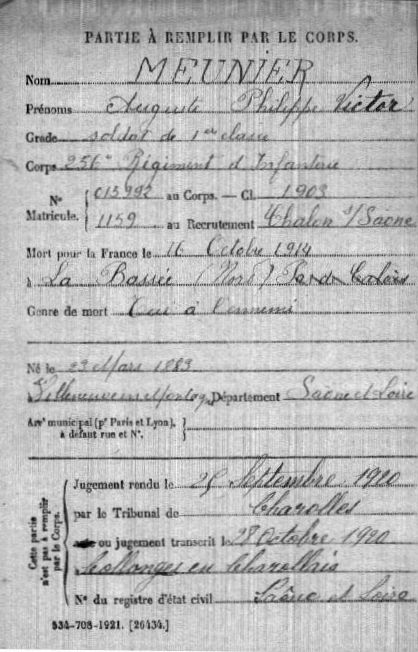 PARTIE À REMPLIR PAR LE CORPS.
Nom MEUNIER
Prénoms Auguste Philippe Victor
Grade soldat de 1ère classe
Corps 256e Régiment d'Infanterie
N° Matricule. { 015992 au Corps. — Cl. 1903
1159 au Recrutement Chalon s/Saone
Mort pour la France le 16 Octobre 1914
à La Bassée (Nord) Pas de Calais
Genre de mort Tué à l'ennemi
Né le 23 Mars 1883
Département Saône et Loire
Arrt municipal (pr Paris et Lyon), à défaut rue et N°. }
Cette partie n'est pas à remplir par le Corps.
Jugement rendu le 25 Septembre 1920
par le Tribunal de Charolles
acte ou jugement transcrit le 28 Octobre 1920
Collonges en Charollais
N° du registre d'état civil Saône et Loire
534-708-1921. [26434.]